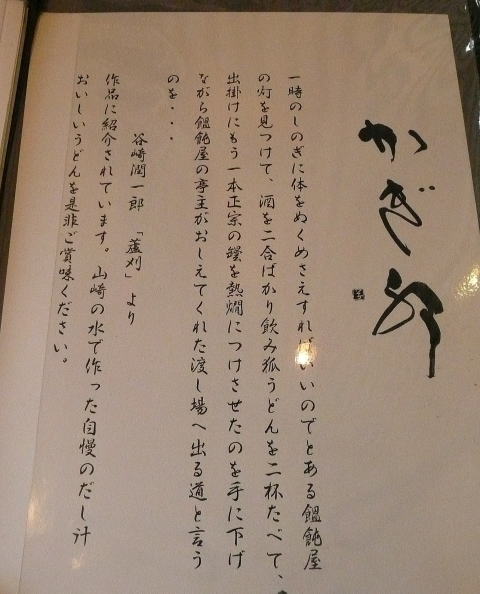 かぎ卯
一時のしのぎに体をぬくめさえすればいいのでとある饂飩屋
の灯を見つけて、酒を二合ばかり飲み狐うどんを二杯たべて、
出掛けにもう一本正宗の罎を熱燗につけさせたのを手に下げ
ながら饂飩屋の亭主がおしえてくれた渡し場へ出る道と言う
のを・・・
谷崎潤一郎 「蘆刈」 より
作品に紹介されています。山崎の水で作った自慢のだし汁
おいしいうどんを是非ご賞味ください。